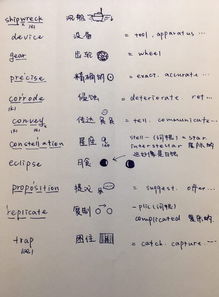 shipwreck 沉船
device 设备 = tool. apparatus ...
gear 齿轮 = wheel
precise 精确的 = exact. accurate ...
corrode 侵蚀 = deteriorate
convey 传达 = tell. communicate ...
constellation 星座 stell- (词根) = star
interstellar
eclipse 月食
proposition 提议 = suggest. offer ...
replicate 复制 -plic (词根)
complicated 复杂的
trap 困住 = catch. capture ...